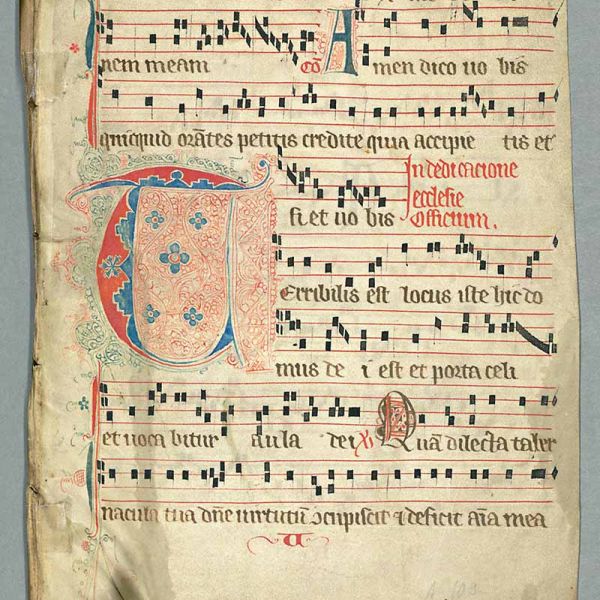 nem meam Co Amen dico uo bis
quicquid orātes petitis credite quia accipie tis et
fi et uo bis
In dedicacione
ecclesie
Officium.
Terribilis est locus iste hic do
mus de i est et porta celi
et uoca bitur aula dei Ps Quā dilecta taber
nacula tua dñe uirtutū ɔcupiscit ⁊ deficit aīa mea